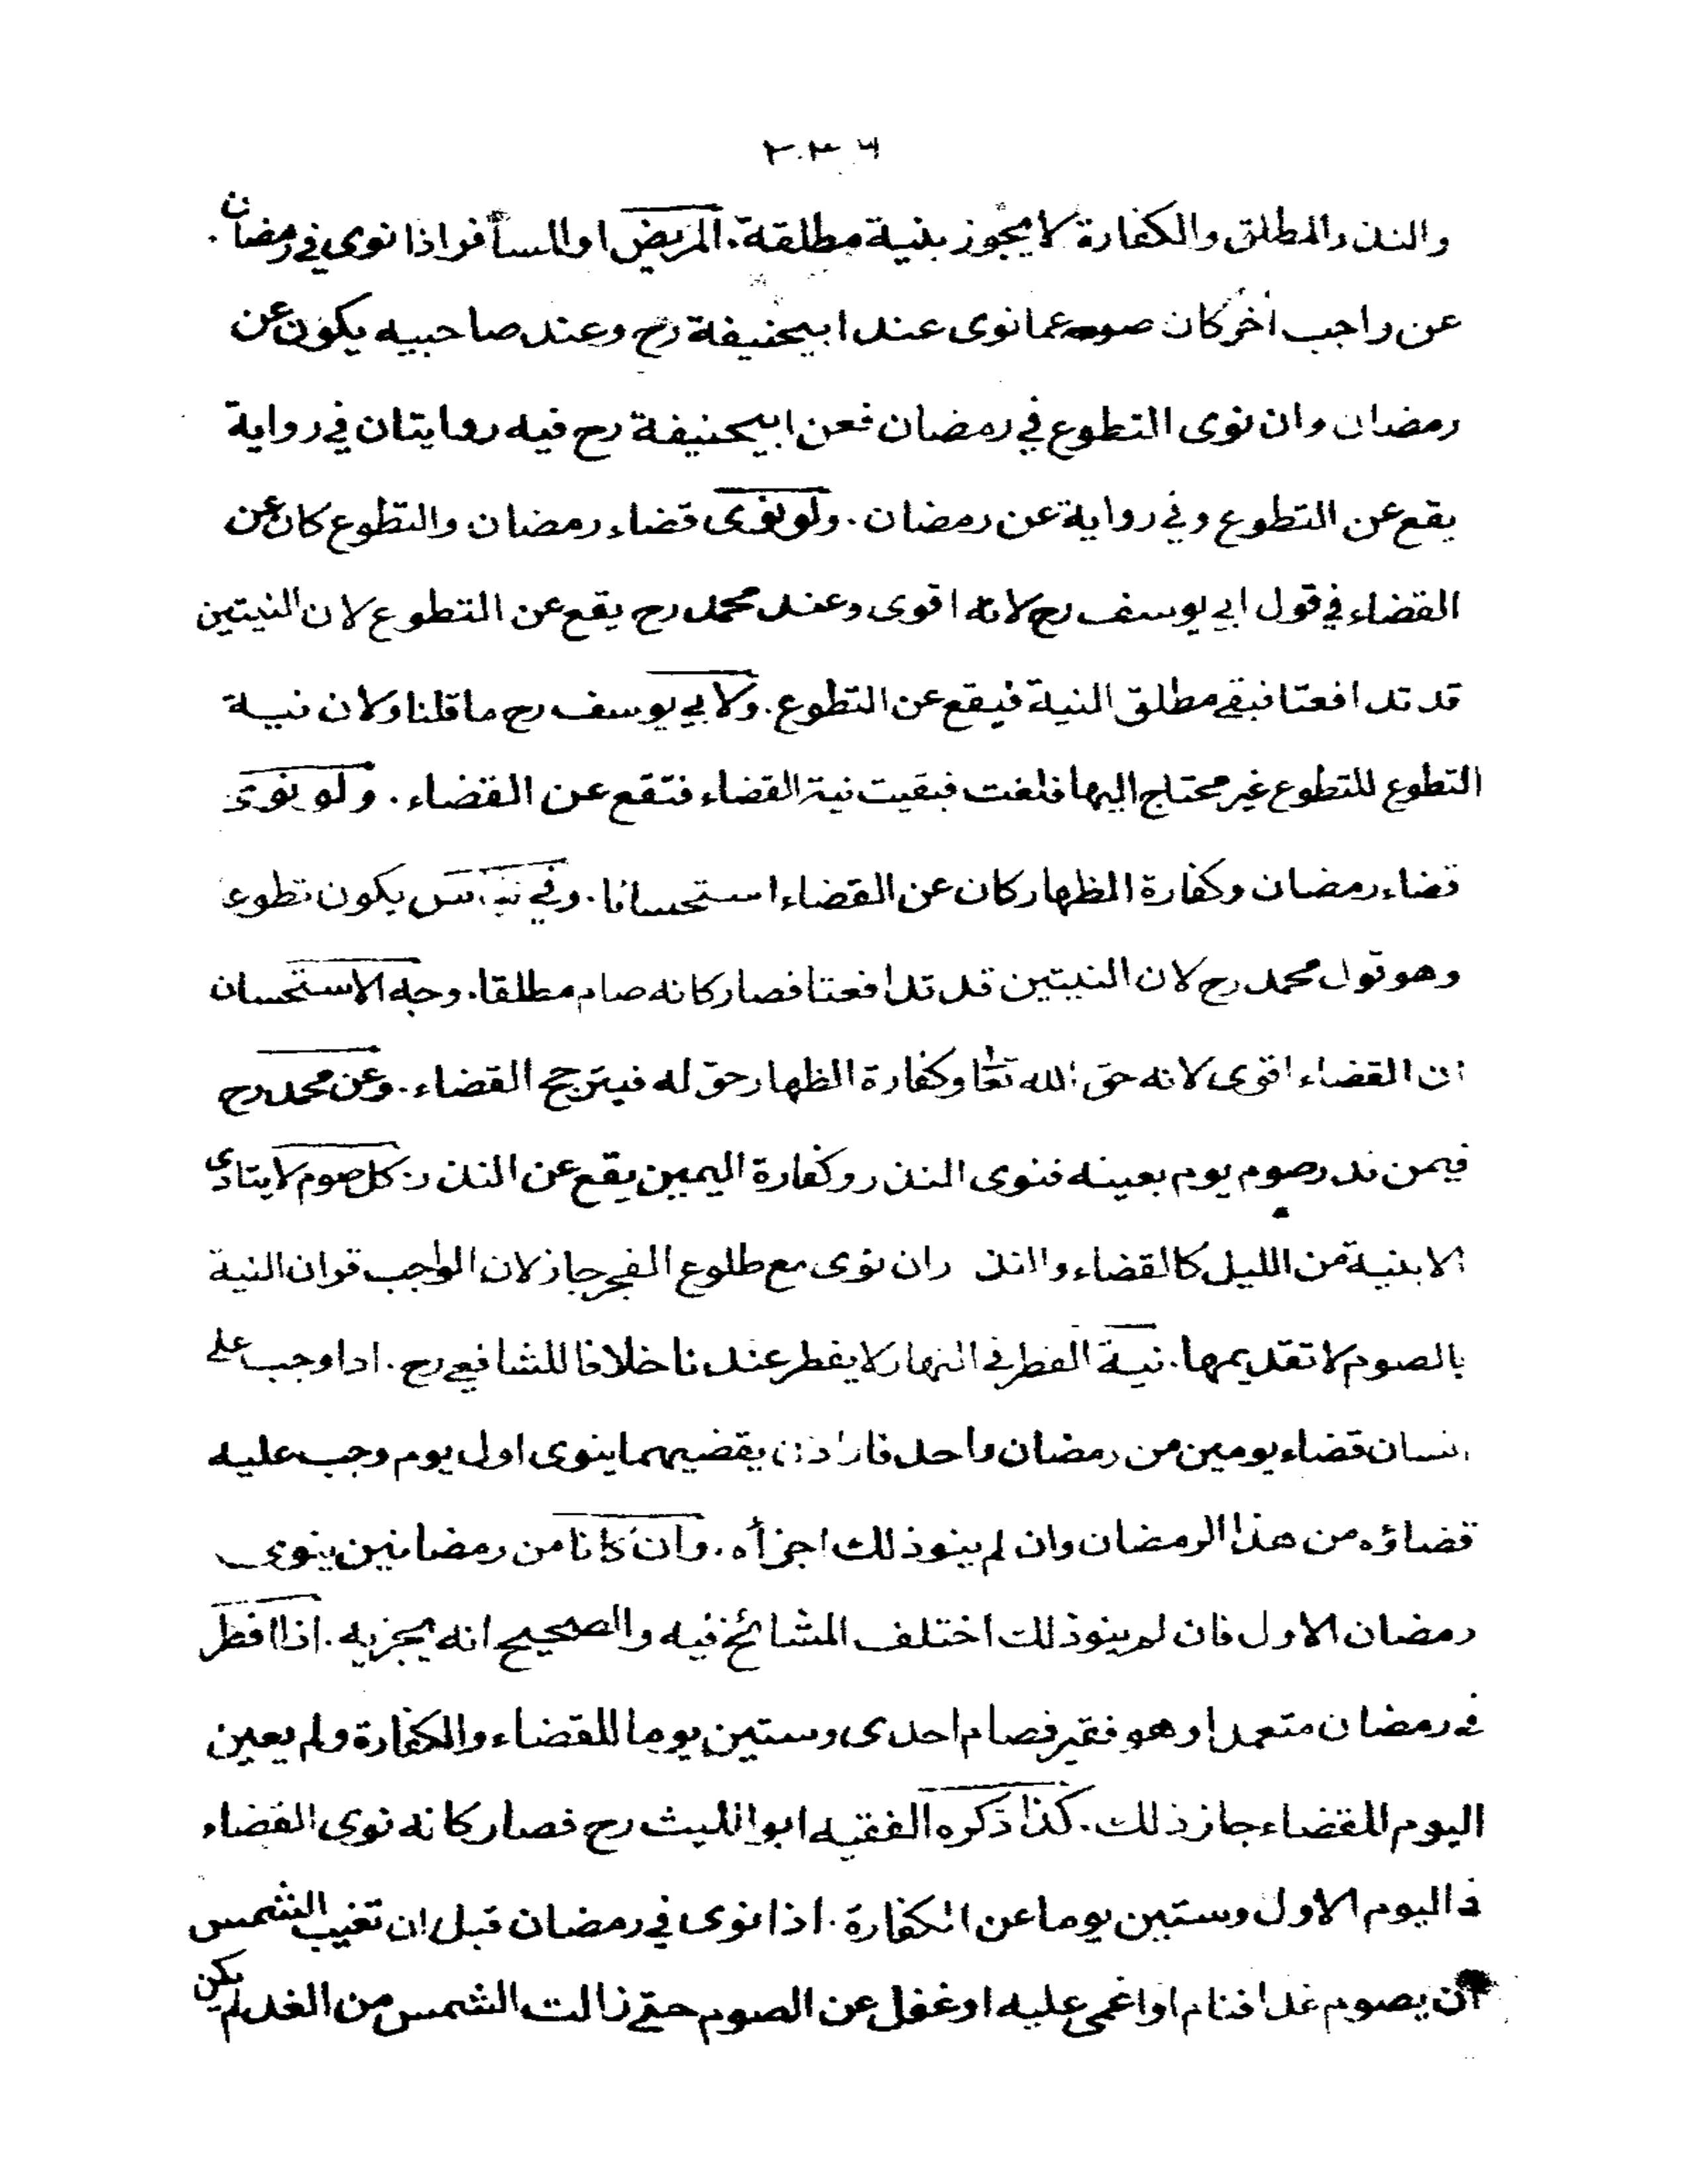 والنذر المطلق والكفارة لا يجوز بنية مطلقة. المريض او المسافر اذا نوى في رمضان
عن واجب اخر كان صومه عما نوى عند ابيحنيفة رح وعند صاحبيه يكون عن
رمضان وان نوى التطوع في رمضان فعن ابيحنيفة رح فيه روايتان في رواية
يقع عن التطوع وفي رواية عن رمضان. ولو نوى قضاء رمضان والتطوع كان عن
القضاء في قول ابي يوسف رح لانه اقوى وعند محمد رح يقع عن التطوع لان النيتين
قد تدافعتا فبقي مطلق النية فيقع عن التطوع. ولابي يوسف رح ما قلنا ولان نية
التطوع للتطوع غير محتاج اليها فلغت فبقيت نية القضاء فتقع عن القضاء. ولو نوى
قضاء رمضان وكفارة الظهار كان عن القضاء استحسانا. وفي يكون تطوعا
وهو قول محمد رح لان النيتين قد تدافعتا فصار كانه صام مطلقا. وجه الاستحسان
ان القضاء اقوى لانه حق الله تعا وكفارة الظهار حق له فيترجح القضاء. وعن محمد رح
فيمن نذر صوم يوم بعينه فنوى النذر وكفارة اليمين يقع عن النذر. كل صوم لا يتادى
الا بنية من الليل كالقضاء والنذر ان نوى مع طلوع الفجر جاز لان الواجب قران النية
بالصوم لا تقديمها. نية الفطر في النهار لا يفطر عندنا خلافا للشافعي رح. اذا وجب على
انسان قضاء يومين من رمضان واحد فاراد ان يقضيهما ينوى اول يوم وجب عليه
قضاؤه من هذا الرمضان وان لم ينو ذلك اجزأه. وان كانا من رمضانين ينوى
رمضان الاول فان لم ينو ذلك اختلف المشائخ فيه والصحيح انه يجزيه. اذا افطر
في رمضان متعمدا وهو فقير فصام احدى وستين يوما للقضاء والكفارة ولم يعين
اليوم للقضاء جاز ذلك. كذا ذكره الفقيه ابو الليث رح فصار كانه نوى القضاء
في اليوم الاول وستين يوما عن الكفارة. اذا نوى في رمضان قبل ان تغيب الشمس
ان يصوم غدا فنام او اغمى عليه او غفل عن الصوم حتى زالت الشمس من الغد لم يكن